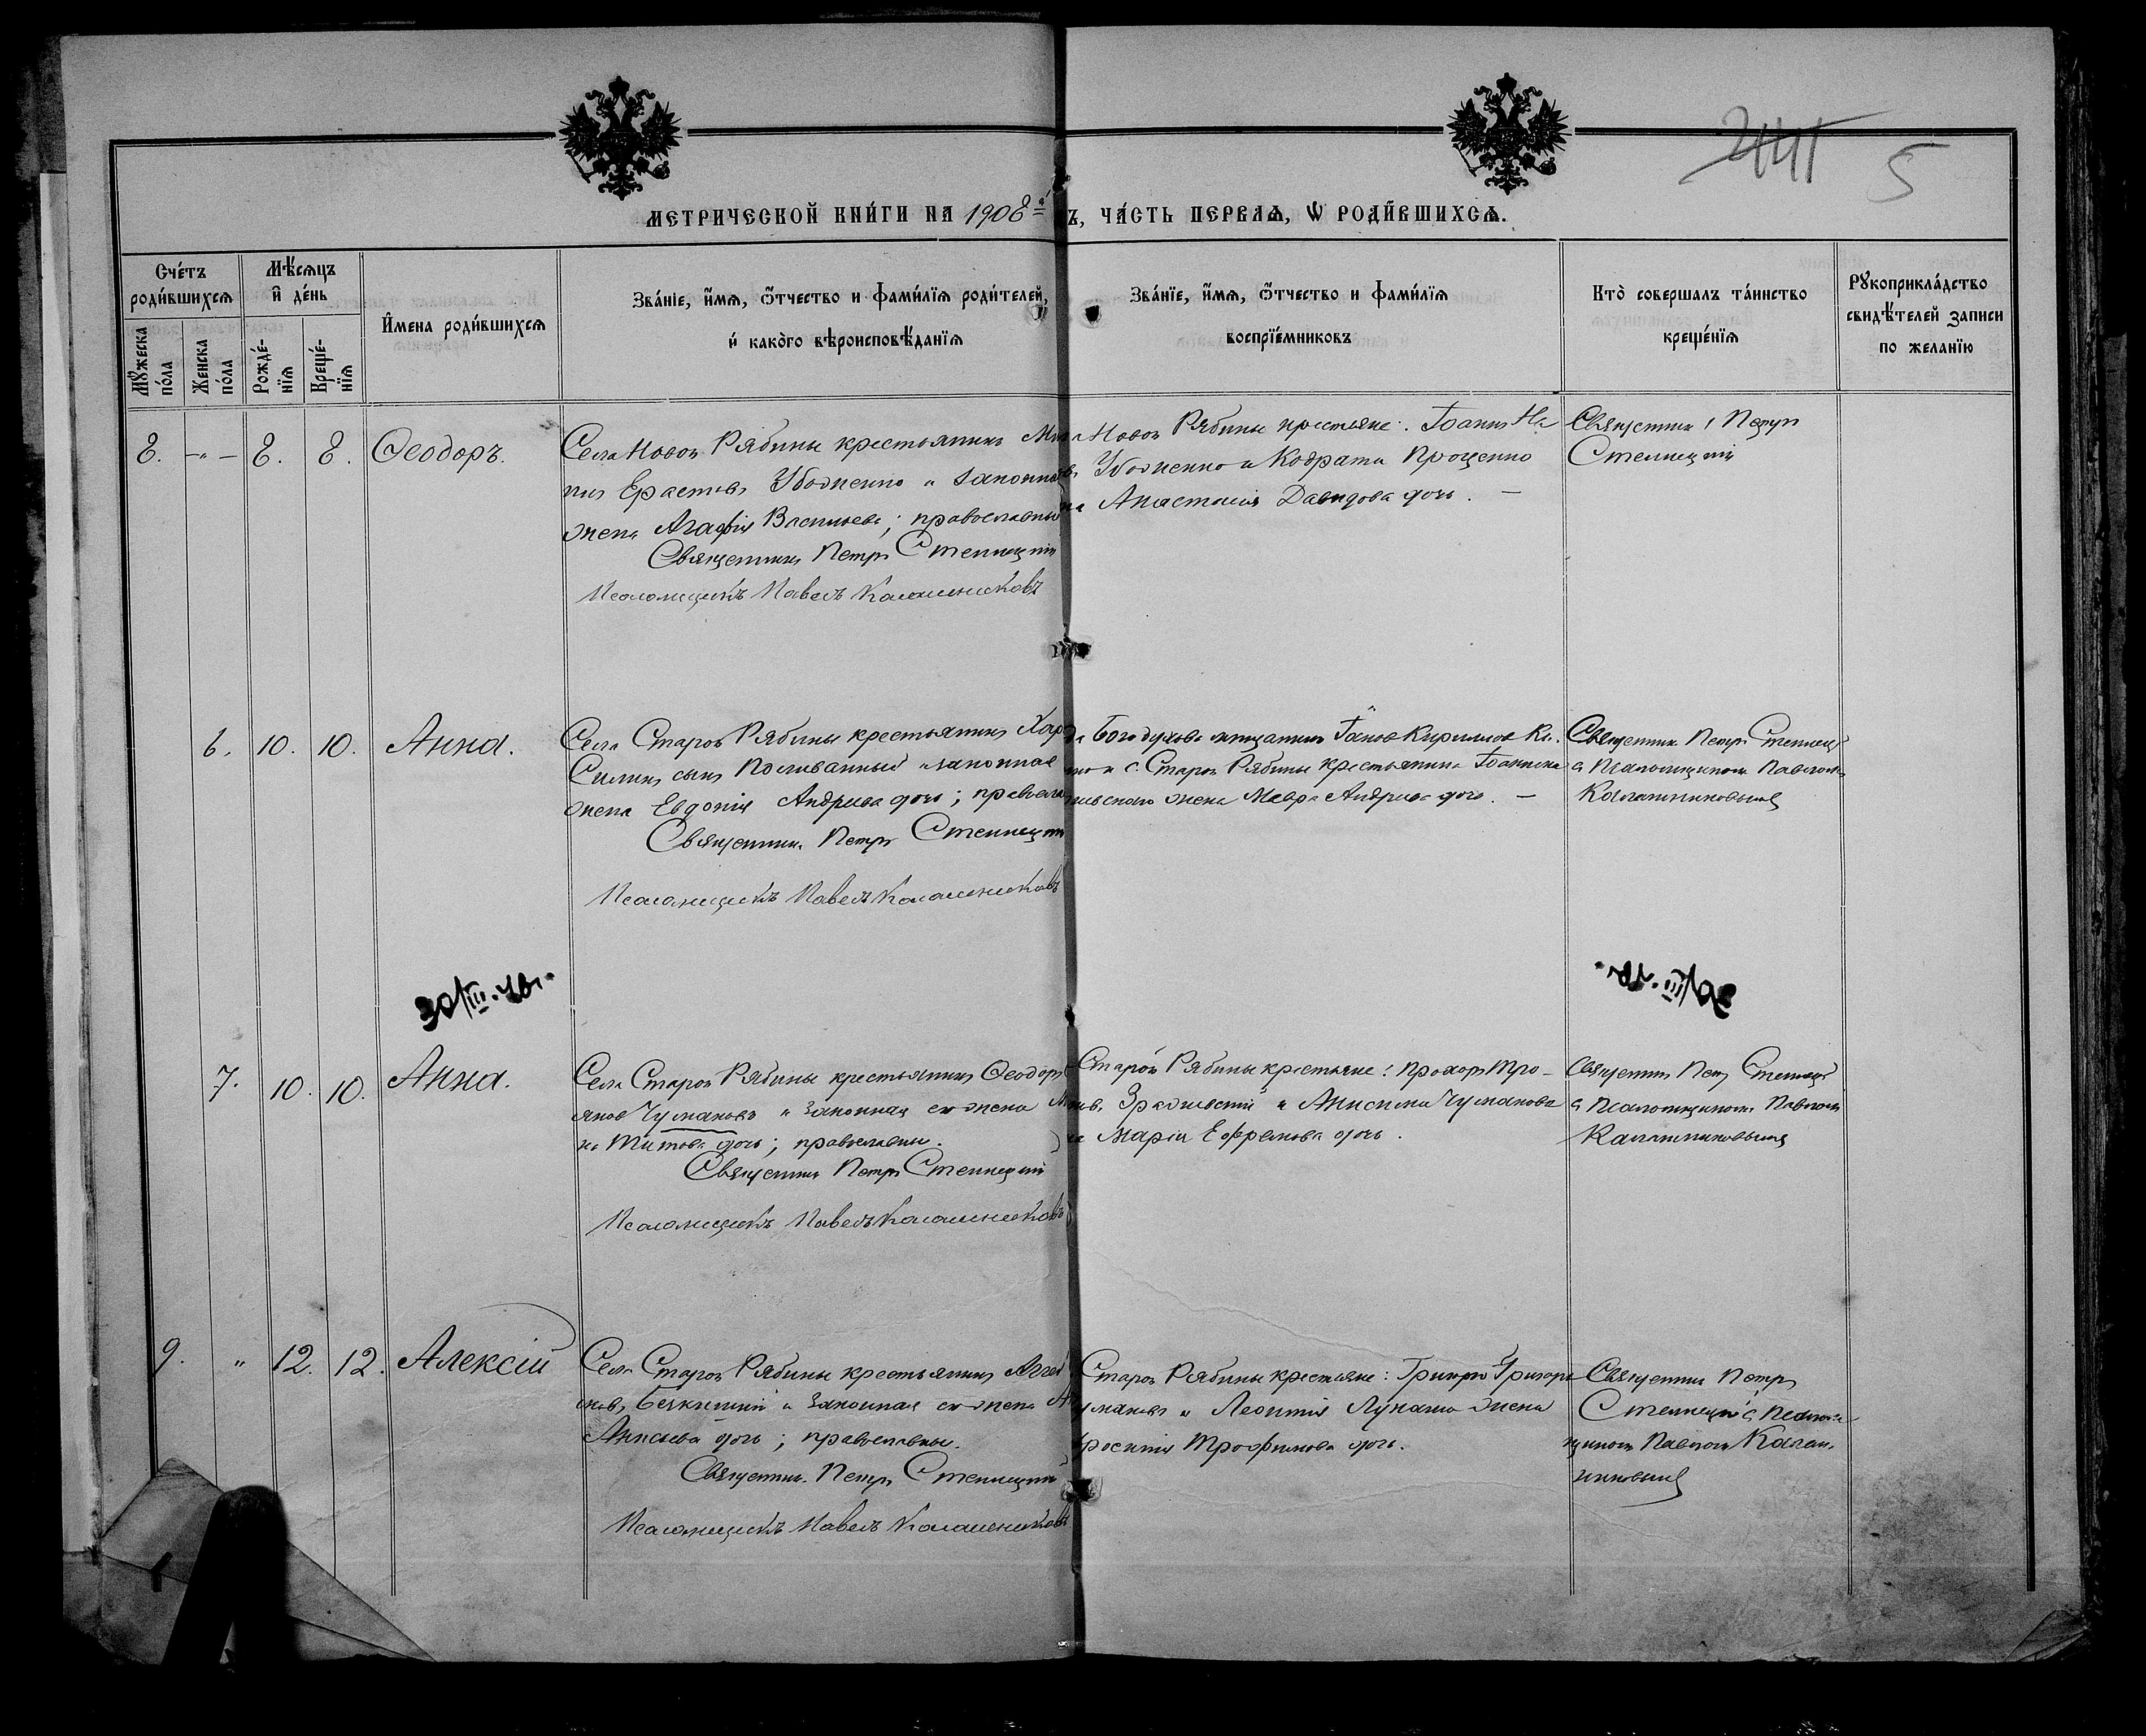 241
5
МЕТРИЧЕСКОЙ КНИ́ГИ НА 1908 Ъ, ЧА́СТЬ ПЕРВАѦ, Ѡ РОДИ́ВШИХСѦ.
Сче́тъ родившихсѧ
Мꙋжеска по́ла
Женска по́ла
Мѣ́сѧцъ и де́нь
Рожде́-нїѧ
Креще́-нїѧ
И́мена роди́вшихсѧ
Зва́нїе, и́мѧ, ѻ́тчество и фами́лїѧ роди́телей,
и како́го вѣроисповѣ́данїѧ
Зва́нїе, и́мѧ, ѻ́тчество и фами́лїѧ
воспрїе́мниковъ
Кто̀ совершалъ та́инство
креще́нїѧ
Рꙋкоприкла́дство
свидѣ́телей записи
по жела́нїю
8. -„- 8. 8. Ѳеодоръ.
Села Новой Рябины крестьянинъ
Ерастовъ Убоженко и законная
жена Агафія Васильева; православны
Священникъ Петръ Стеллецкій
Псаломщикъ Павелъ Калашниковъ
Новой Рябины крестьяне: Іоаннъ
Убоженко и Кодрата Проценко
Анастасія Давидова дочь. —
Священникъ Петръ
Стеллецкій
6. 10. 10. Анна.
Села Старой Рябины крестьянинъ Хар
Силинъ сынъ Поливанный и законная
жена Евдокія Андреева дочь; правосла
Священникъ Петръ Стеллецкій
Псаломщикъ Павелъ Калашниковъ
Богодухова мѣщанинъ Іаковъ Кирилловъ
с. Старой Рябины крестьянина Іоанна
жена Мавра Андреева дочь. —
Священникъ Петръ Стеллец
съ Псаломщикомъ Павломъ
Калашниковымъ
30/III.
30/III.
7. 10. 10. Анна.
Села Старой Рябины крестьянинъ Ѳеодоръ
Чумаковъ и законная его жена
Титова дочь; православны.
Священникъ Петръ Стеллецкій
Псаломщикъ Павелъ Калашниковъ
Старой Рябины крестьяне: Прохоръ Тро-
и Анисима Чумакова
Марія Ефремова дочь.
Священникъ Петръ Стеллец
съ Псаломщикомъ Павломъ
Калашниковымъ
9. „ 12. 12. Алексій
Села Старой Рябины крестьянинъ Аггей
и законная его жена
дочь; православны.
Священникъ Петръ Стеллецкій
Псаломщикъ Павелъ Калашниковъ
Старой Рябины крестьяне: Григорій Григорь
и Леонтія Лукаша жена
Трофимова дочь.
Священникъ Петръ
Стеллецкій съ Псалом-
щикомъ Павломъ Калаш-
никовымъ